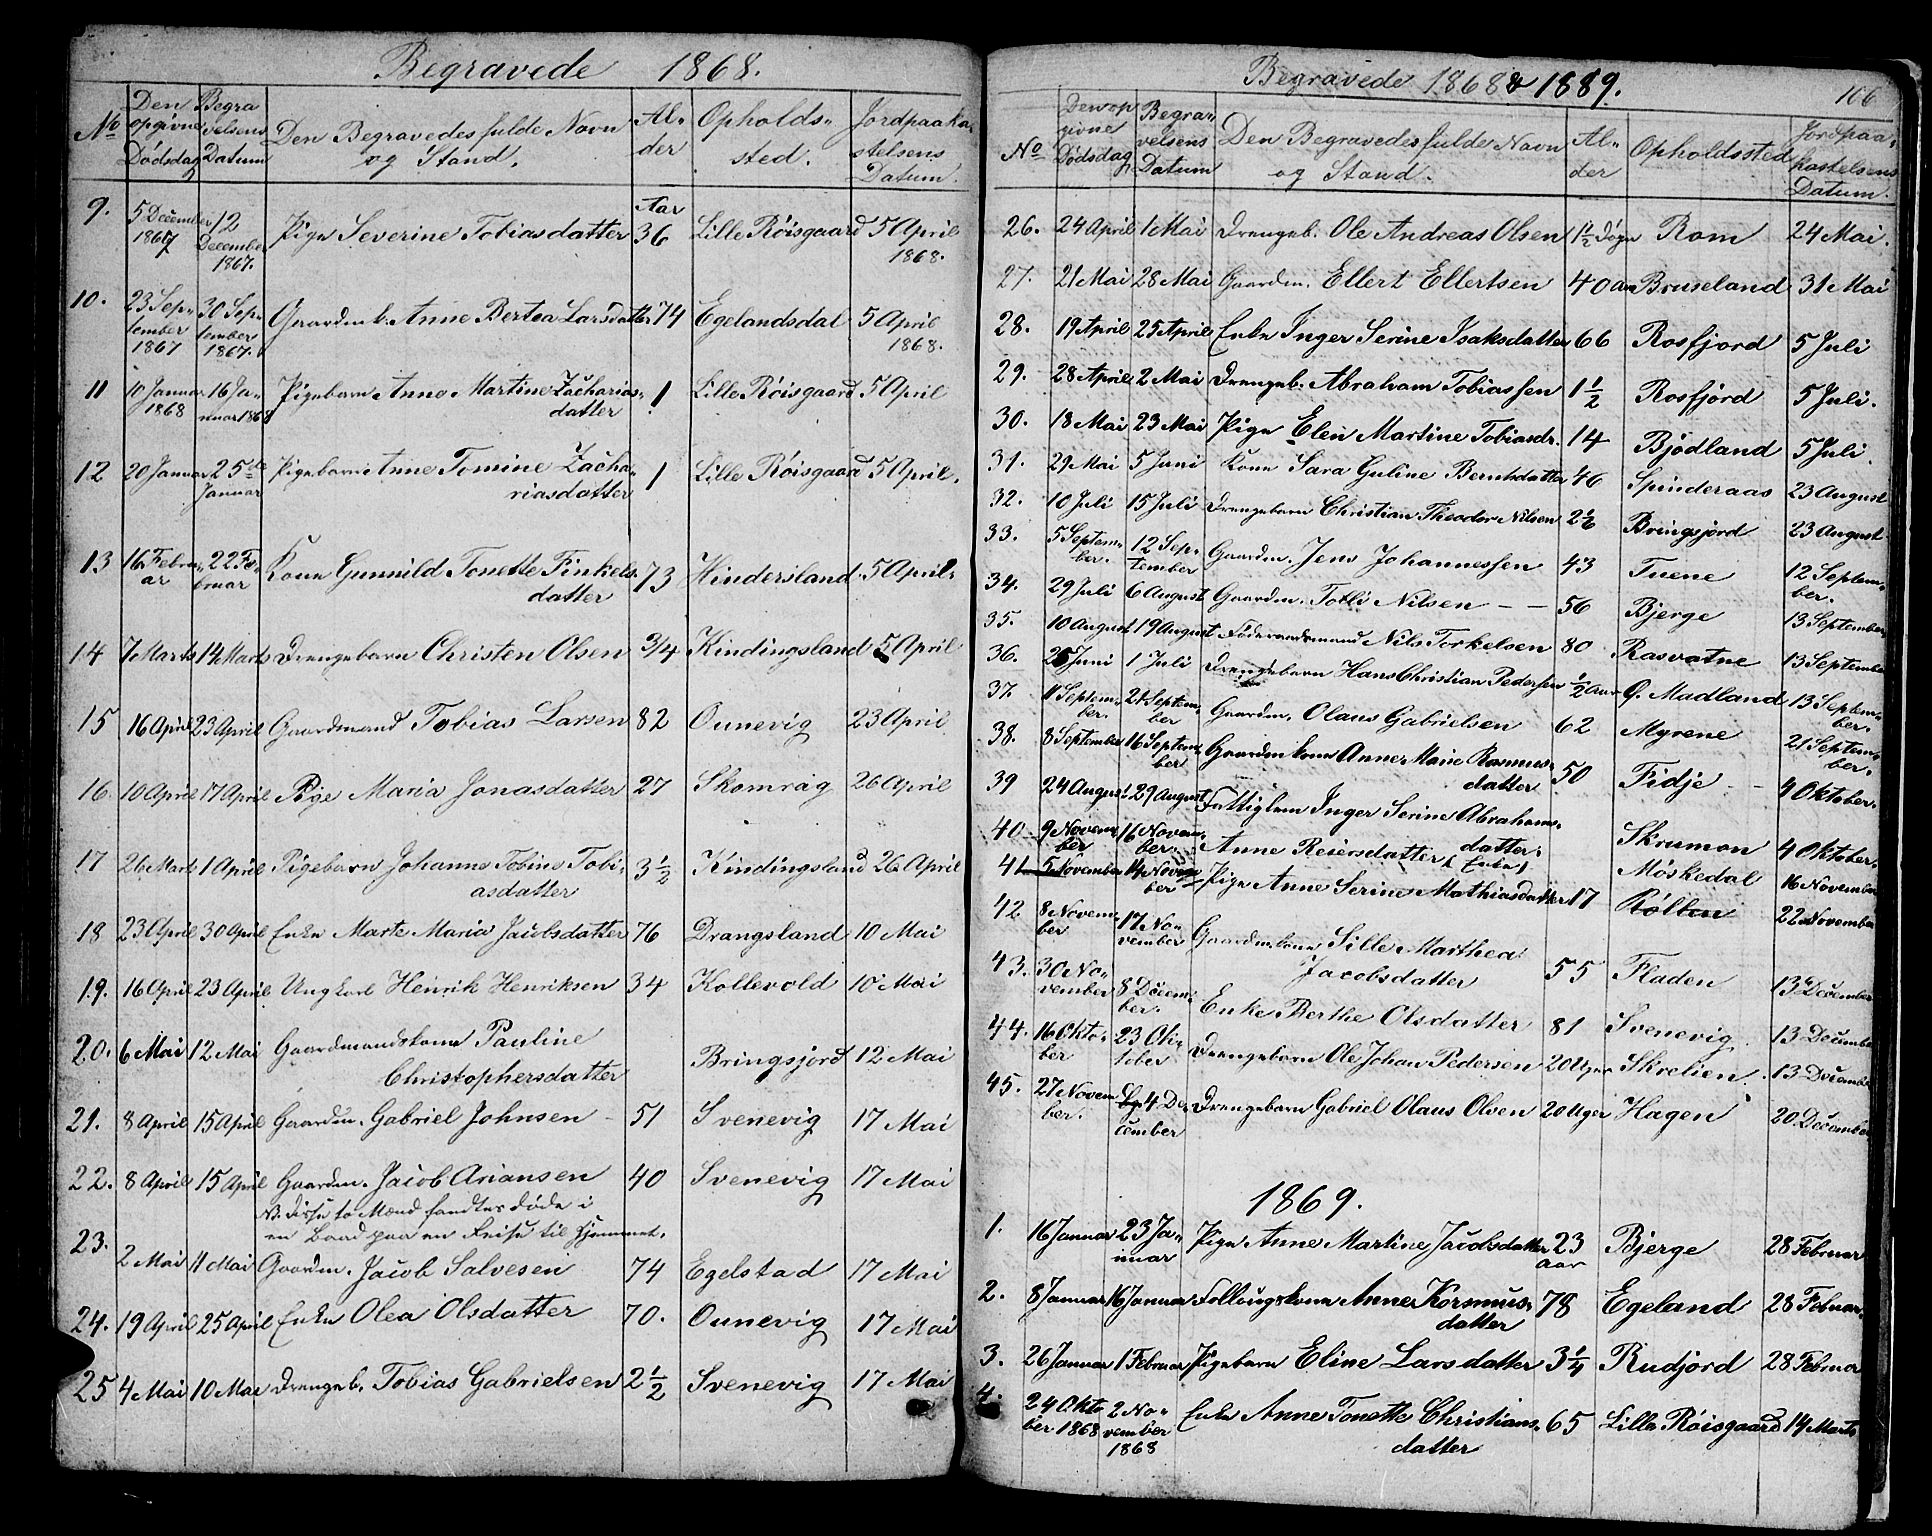 Begravede 1868.
No Den opgivne Dødsdag Begravelsens Datum Den Begravedes fulde Navn og Stand. Alder Opholdssted. Jordpaakastelsens Datum.
9. 5 December 1867 12 December 1867. Pige Severine Tobiasdatter Aar 36 Lille Røisgaard 5 April 1868.
10. 23 September 1867 30 September 1867. Gaardmk. Anne Bertea Larsdatter 74 Egelandsdal 5 April 1868.
11 10 Januar 1868 16 Januar 1868 Pigebarn Anne Martine Zachariasdatter 1 Lille Røisgaard 5 April
12 20 Januar 25de Januar Pigebarn Anne Tomine Zachariasdatter 1 Lille Røisgaard 5 April.
13 16 Februar 22 Februar Kone Gunnild Tonette Finkelsdatter 73 Hindersland 5 April.
14 7 Marts 14 Marts Drengebarn Christen Olsen 3/4 Kindingsland 5 April
15 16 April 23 April Gaardmand Tobias Larsen 82 Ounevig 23 April
16. 10 April 17 April Pige Maria Jonasdatter 27 Skomrag 26 April
17 26 Marts 1 April Pigebarn Johanne Tobine Tobiasdatter 3 1/2 Kindingsland 26 April
18 23 April 30 April Enke Marte Maria Jacobsdatter 76 Drangsland 10 Mai
19. 16 April 23 April Ungkarl Henrik Henriksen 34 Kollevold 10 Mai
20. 6 Mai 12 Mai Gaardmandskone Pauline Christophersdatter Bringsjord 12 Mai
21. 8 April 15 April Gaardm. Gabriel Johnsen 51 Svenevig 17 Mai
22. 8 April 15 April Gaardm. Jacob Ariansen 40 Svenevig 17 Mai
NB. disse to Mænd fandtes døde i
en Baad paa en Reise til Hjemmet.
23. 2 Mai 11 Mai Gaardm. Jacob Salvesen 74 Egelstad 17 Mai
24. 19 April 25 April Enke Olea Olsdatter 70. Ounevig 17 Mai
25 4 Mai 10 Mai Drengeb. Tobias Gabrielsen 2 1/2 Svenevig 17 Mai
Begravede 1868 & 1889. 106
No Den opgivne Dødsdag Begravelsens Datum Den Begravedes fulde Navn og Stand. Alder Opholdssted Jordpaakastelsens Datum.
26. 24 April 1 Mai Drengeb. Ole Andreas Olsen 1 1/2 Døgn Rom 24 Mai.
27. 21 Mai 28 Mai Gaardm. Ellert Ellertsen 40 aar Bruseland 31 Mai
28. 19 April 25 April Enke Inger Serine Isaksdatter 66 Rosfjord 5 Juli
29. 28 April 2 Mai Drengeb. Abraham Tobiassen 1 1/2 Rosfjord 5 Juli.
30. 18 Mai 23 Mai Pige Elen Martine Tobiasdr. 14 Bjødland 5 Juli.
31. 29 Mai 5 Juni Kone Sara Guline Berntsdatter 46 Spinderaas 23 August
32. 10 Juli 15 Juli Drengebarn Christian Theodor Nilsen 2 1/2 Bringsjord 23 August
33. 5 September. 12 September Gaardm. Jens Johannessen 43 Tuene 12 September.
34. 29 Juli 6 August Gaardm. Tolli Nilsen — — 56 Bjerge 13 September
35. 10 August 19 August Føderaadsmand Nils Torkelsen 80 Rasvatne 13 September
36. 25 Juni 1 Juli Drengebarn Hans Christian Pedersen 1/2 aar Ø. Madland 13 September.
37. 11 September. 21 September Gaardm. Olaus Gabrielsen 62 Myrene 21 September.
38. 8 September 16 September Gaardmkone Anne Marie Rasmusdatter 50 Fidje 4 Oktober.
39 24 August 29 August Fattiglem Inger Serine Abrahamsdatter. Skrumon 4 Oktober.
40 9 November 16 November. Anne Reiersdatter (Enke) Møskedal 16 November
41 5 November 14 November Pige Anne Serine Mathiasdatter 17 Røllen 22 November
42 8 November 17 November Gaardmkone Sille Marthea Jacobsdatter 55 Fladen 13 December
43. 30 November 8 December. Enke Berthe Olsdatter 81 Svenevig 13 December
44. 16 Oktober 23 Oktober Drengebarn Ole Johan Pedersen 20 Uger Skrelien. 13 December
45. 27 November. 4 December Drengebarn Gabriel Olaus Olsen 20 Uger Hagen 20 December
1869.
1. 16 Januar 23 Januar Pige Anne Martine Jacobsdatter 23 aar Bjerge 28 Februar
2. 8 Januar 16 Januar Føllougskone Anne Korsmusdatter 78 Egeland 28 Februar.
3. 26 Januar 1 Februar Pigebarn Eline Larsdatter 3 1/4 Rudjord 28 Februar
4. 24 Oktober 1868 2 November 1868 Enke Anne Tonette Christiansdatter 65 Lille Røisgaard 14 Marts